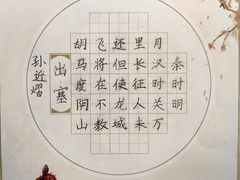 秦时明
月汉时关万
里长征人未
还但使龙城
飞将在不教
胡马度阴山
出塞
孙近熠